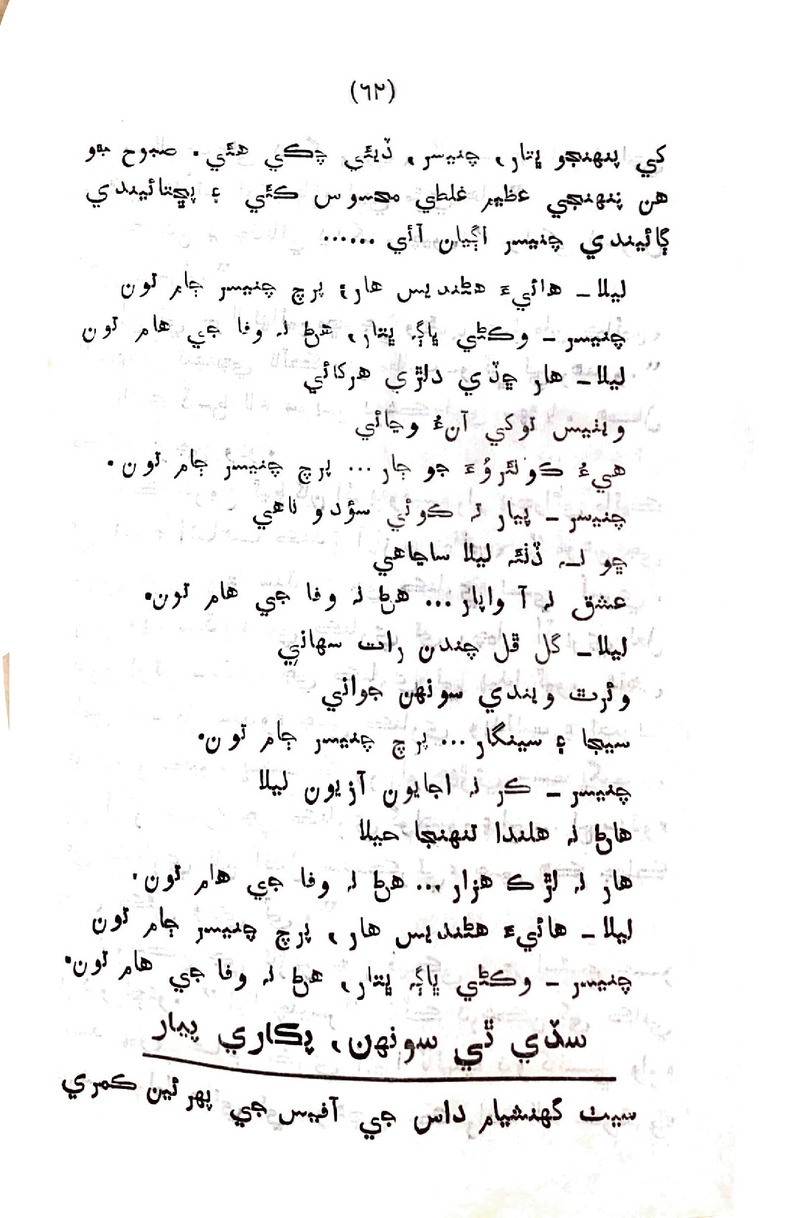 (٦٢)
کي پنھنجو ڀتار، چنيسر، ڏيئي چڪي ھئي. صبوح جو
ھن پنھنجي عظيم غلطي محسوس ڪئي ۽ پڇتائيندي
ڳائيندي چنيسر اڳيان آئي ......
ليلا ـ ھائيءَ ھڻنديس ھار، پرچ چنيسر ڄام تون
چنيسر ـ وڪڻي ڀاڳہ ڀتار، ھڻ نہ وفا جي ھام تون
ليلا ـ ھار ڇڏي دلڙي ھرکائي
ويٺيس توکي آنءُ وڃائي
ھيءُ ڪونئرُوءَ جو ڄار ... پرچ چنيسر ڄام تون.
چنيسر ـ پيار نہ ڪوئي سؤدو ناھي
ڇو نہ ڏٺئہ ليلا ساڃاھي
عشق نہ آ واپار ... ھڻ نہ وفا جي ھام تون.
ليلا ـ گل ڦل چندن رات سھاني
وئرٿ ويندي سونھن جواني
سيجا ۽ سينگار ... پرچ چنيسر ڄام تون.
چنيسر ـ ڪر نہ اجايون آزيون ليلا
ھاڻ نہ ھلندا تنھنجا حيلا
ھار نہ لڙڪ ھزار ... ھڻ نہ وفا جي ھام تون.
ليلا ـ ھائيءَ ھڻنديس ھار، پرچ چنيسر ڄام تون
چنيسر ـ وڪڻي ڀاڳہ ڀتار، ھڻ نہ وفا جي ھام تون.
سڏي ٿي سونھن، پڪاري پيار
سيٺ گھنشيام داس جي آفيس جي پھرئين ڪمري